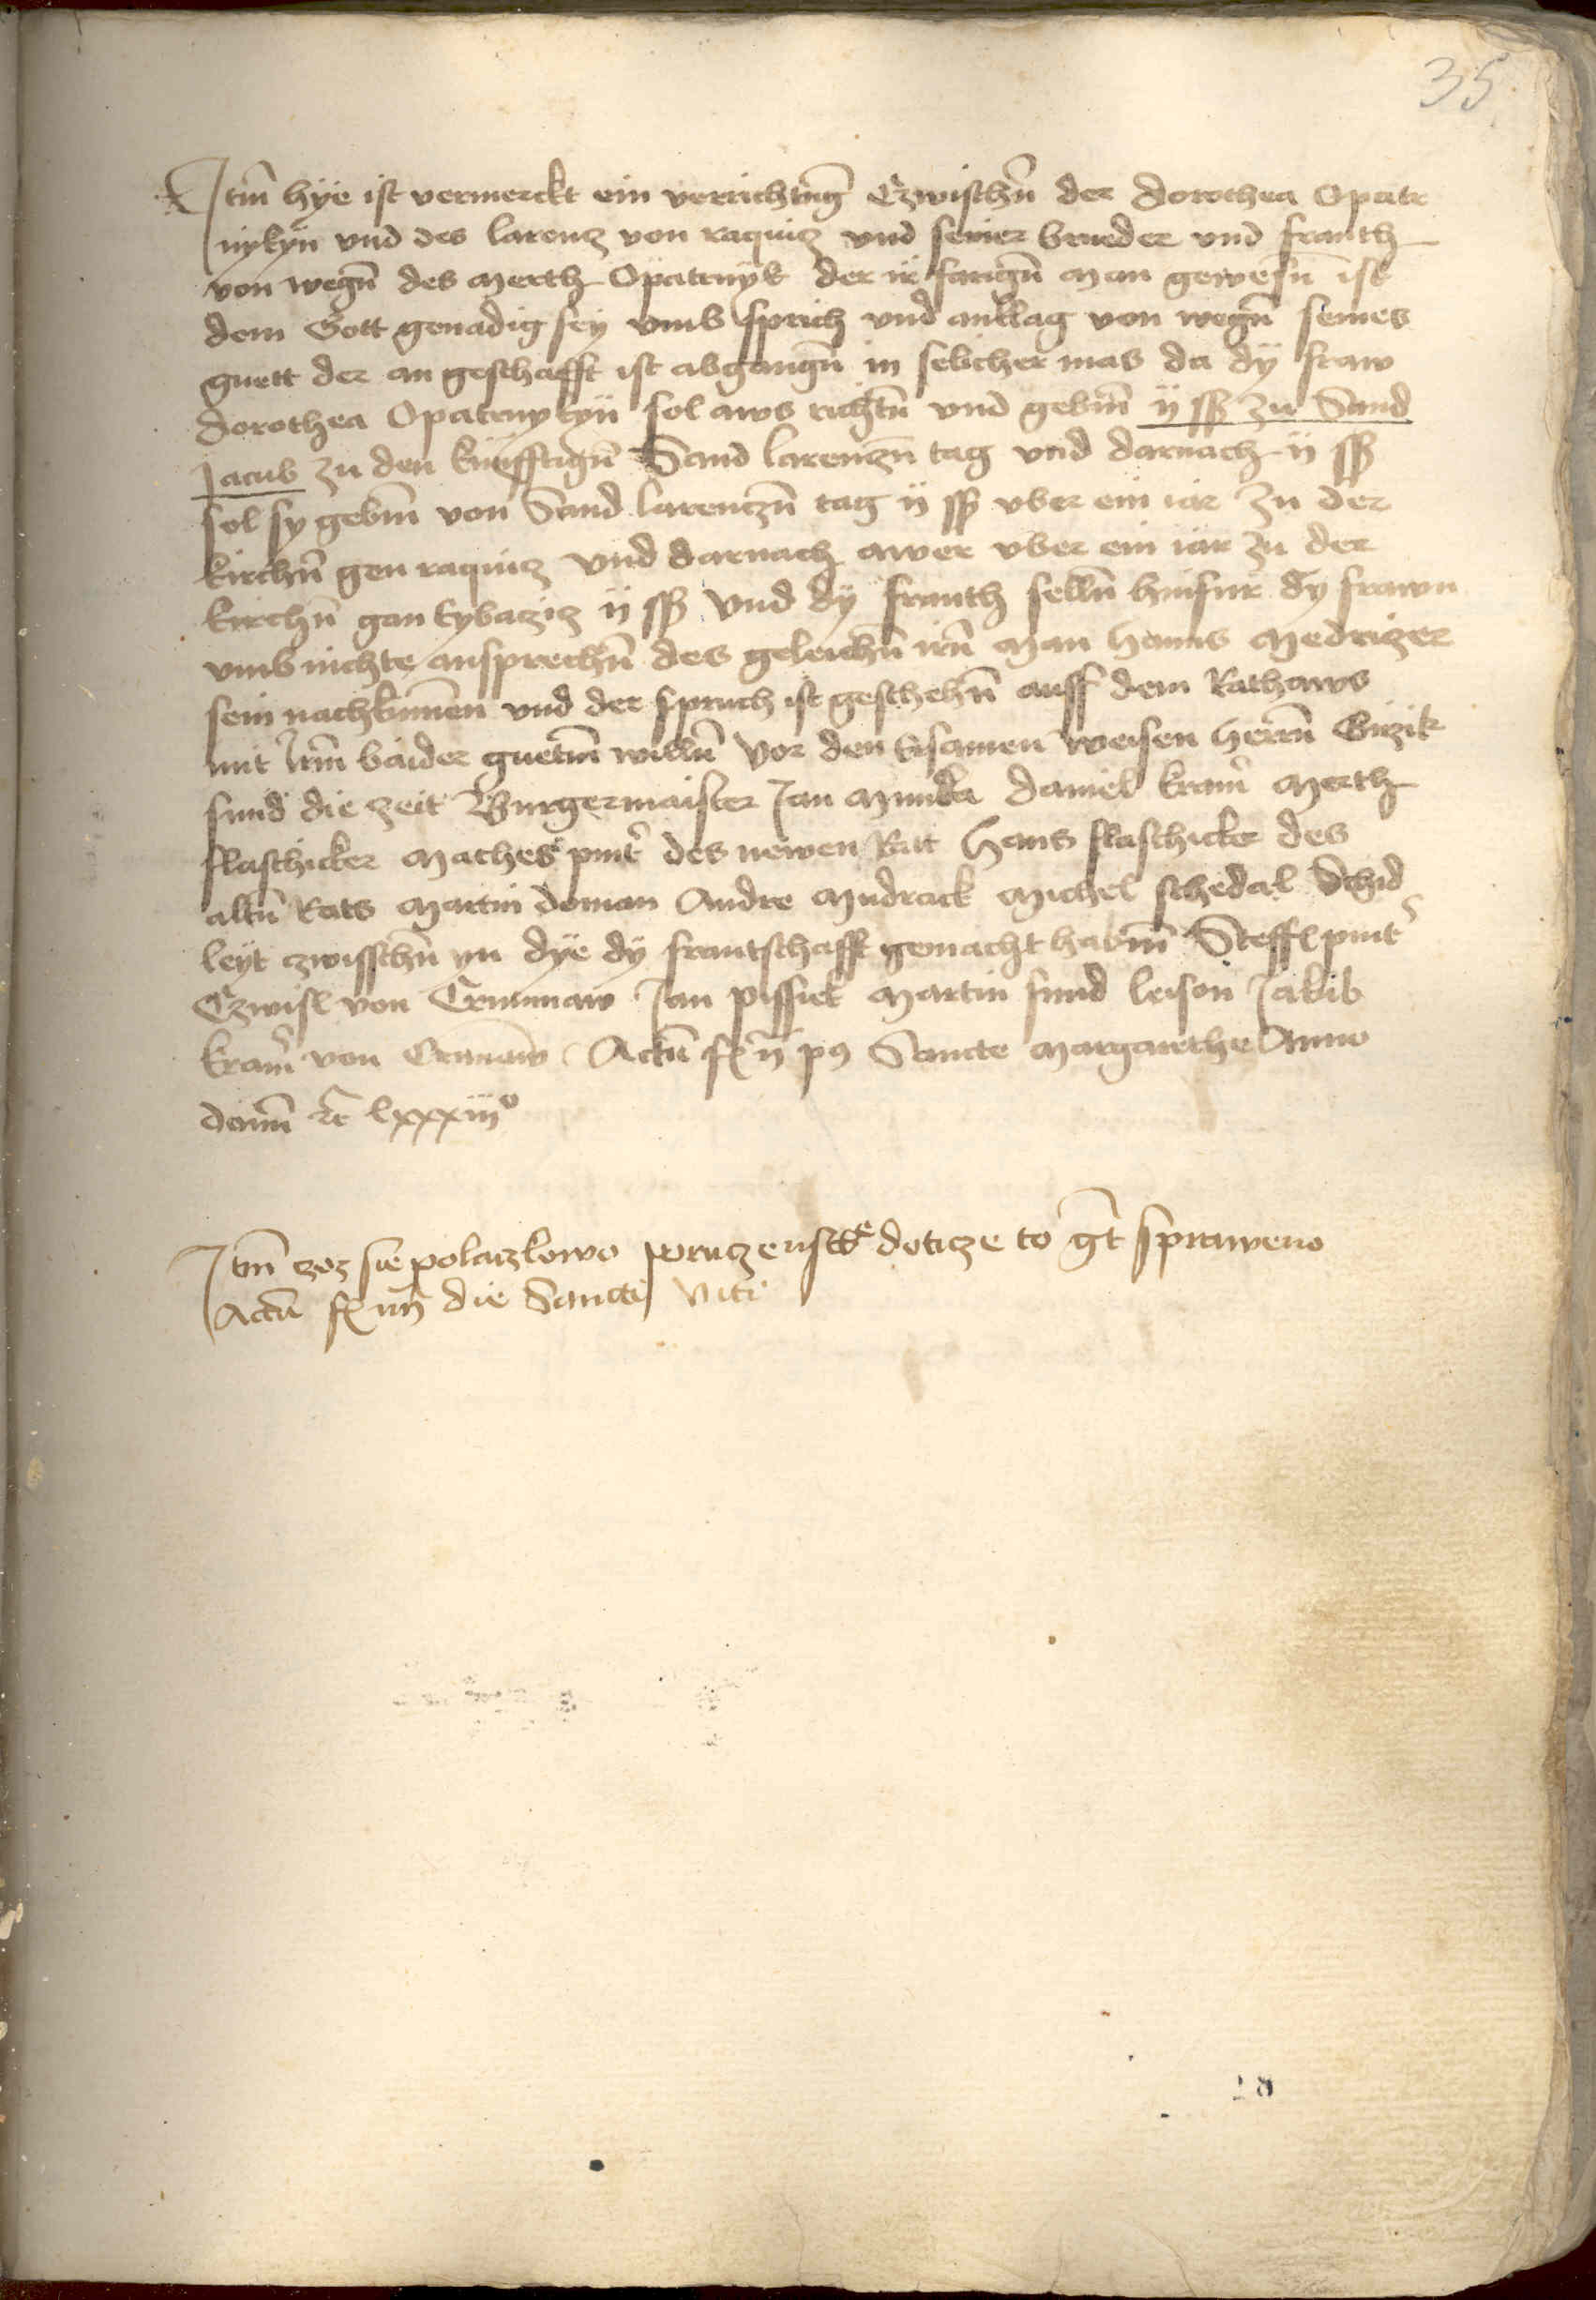 35
Itm̄ hÿe ist vermerckt ein verrichtūg Czwischn̄ der Dorothea Opatr
nykÿn vnd des larencz von raquicz vnd seiner brueder vnd frunth
von wegn̄ des Merth Opatrnÿk der ir farign̄ man gewesn̄ ist
dem Gott genadig sey vmb sprüch vnd anklag von wegn̄ seines
guett der an geschafft ist abgangn̄ in selicher mas da dÿ fraw
Dorothea Opatrnykÿn sol aws richtn̄ vnd gebm̄ ij ssß zu Sand
Jacub zu den künfftign̄ Sand larenczn̄ tag vnd darnach ij ssß
sol sy gebm̄ von Sand larentzn̄ tag ij ssß vber ein iar zu der
kirchn̄ gen raquicz vnd darnach awer vber ein iar zu der
kirchn̄ gan ij ssß vnd dÿ frunth selln̄ hinfur dy frawn
vmb nichte ansprechn̄ des geleichn̄ irn̄ Man hanns Medriczer
sein nachkumen vnd der spruch ist geschehn̄ auff dem Rathaws
mit irm̄ baider guetm̄ willn̄ vor den Ersamen weisen herrn̄ Girzik
sund die zeit Burgermaister Jan Munka Daniel kramr̄ Merth
flaschicker Mathes pintr̄ des newen Rat Hans flaschicker des
altn̄ Rats Martin doman Andre Mudrack Michel schedal Schid
leÿt czwisschn̄ yn dÿe dÿ frantschafft gemacht habm̄ Steffl pintr̄
Czwisl von Crummaw Jan pissiek Martin sund leison Jakub
kramr̄ von Crumaw Actū fr̄ ij p9 Sancte Margarethe Anno
domī etc̄ lxxxiijº
Itm̄ czoz sie polaczkowo poruczenstwe doticze to gt̄ spraweno
Actū fr̄ iiij die Sancti viti